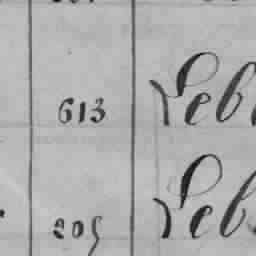 613 Leb
205 Leb